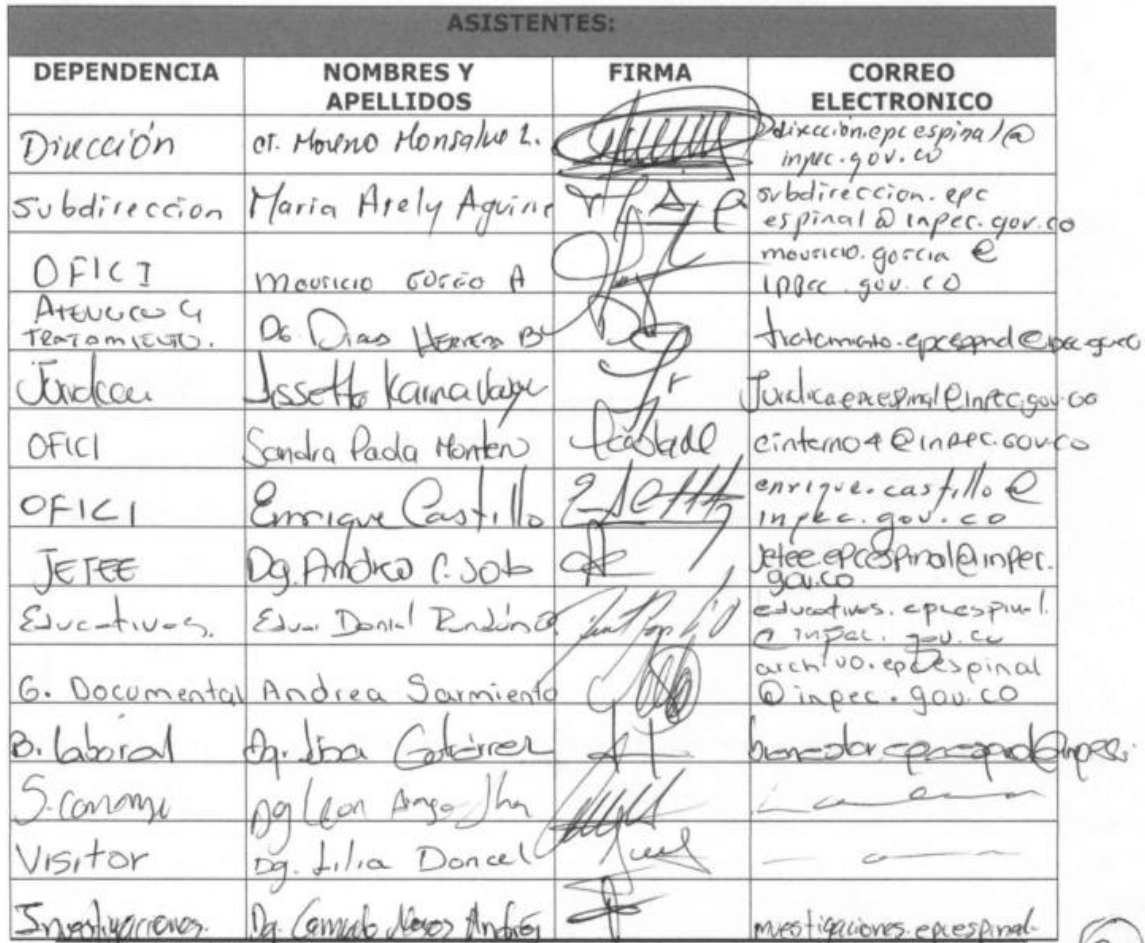 ASISTENTES:
DEPENDENCIA NOMBRES Y APELLIDOS FIRMA CORREO ELECTRONICO
Dirección CT. Moreno Monsalve L. direccion.epcespinal@
inpec.gov.co
Subdireccion Maria Arely Aguirre subdireccion.epc
espinal@inpec.gov.co
OFICI Mauricio A mauricio.garcia@
inpec.gov.co
Atencion y
Tratamiento. DG. Herrera tratamiento.epcespinal@inpec.gov.co
Juridica Karina Juridica.epcespinal@inpec.gov.co
OFICI Sandra Paola Montero cinterno4@inpec.gov.co
OFICI Enrique Castillo enrique.castillo@
inpec.gov.co
JETEE Dg. Andrea C. jetee.epcespinal@inpec.
gov.co
Educativas. educativas.epcespinal.
@inpec.gov.co
G. Documental Andrea Sarmiento archivo.epcespinal
@inpec.gov.co
B. laboral Dg. Gutierrez bienestar.epcespinal@inpec.
Dg Leon
Visitor Dg. Lilia Doncel
Investigaciones. Dg. Andrés investigaciones.epcespinal-